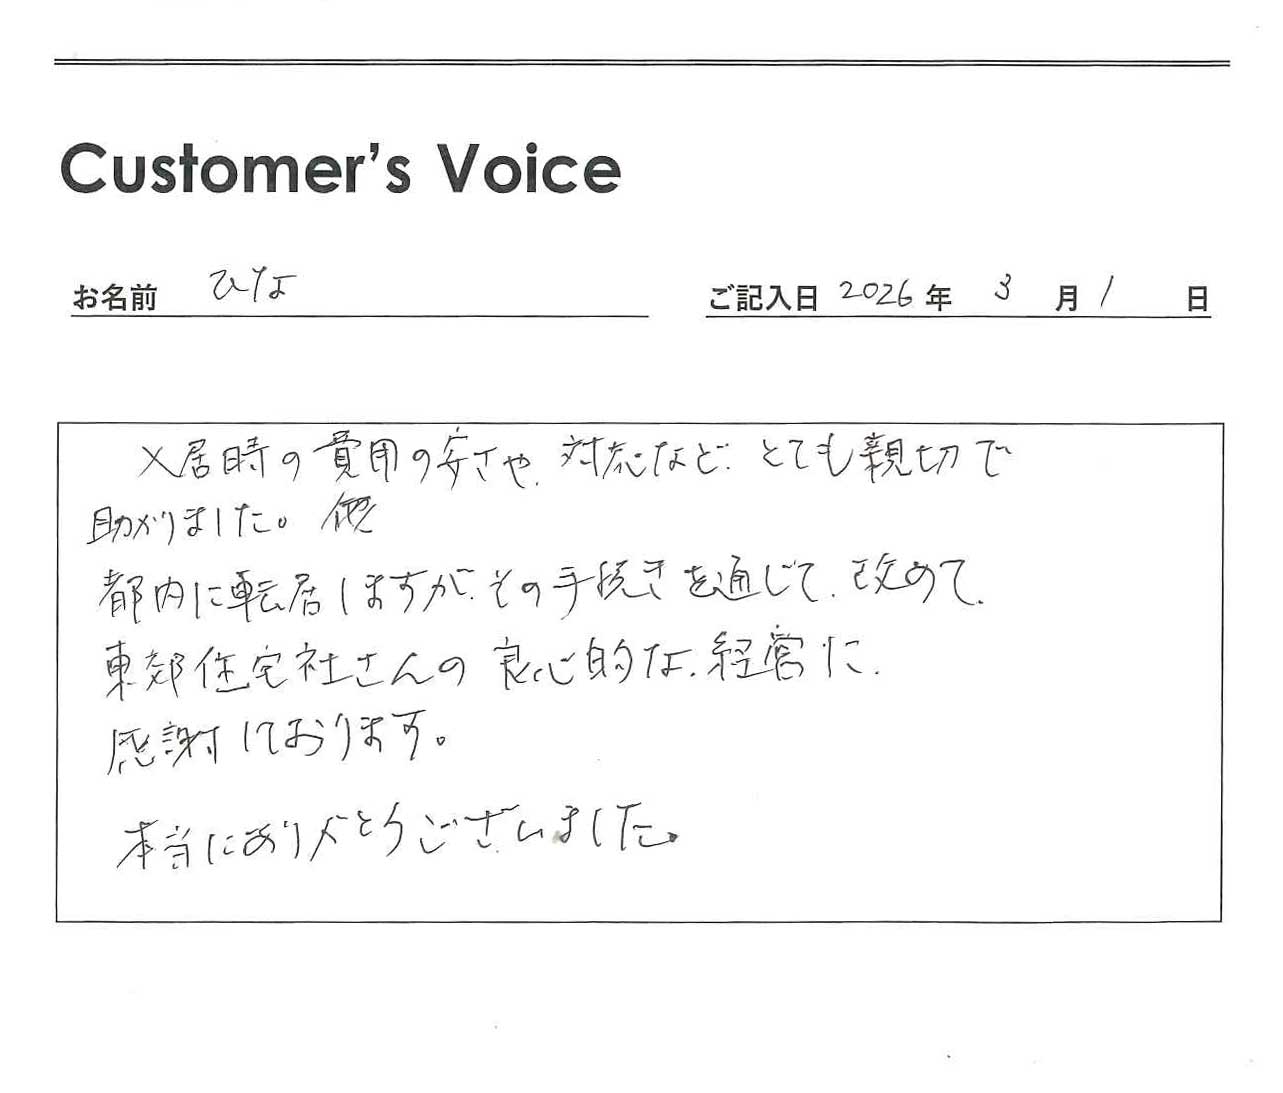 Customer's Voice
お名前 ひな ご記入日 2026年 3月 1日
入居時の費用の安さや、対応など、とても親切で
助かりました。他
都内に転居しますが、その手続きを通じて、改めて、
東郊住宅社さんの良心的な、経営に、
感謝しております。
本当にありがとうございました。